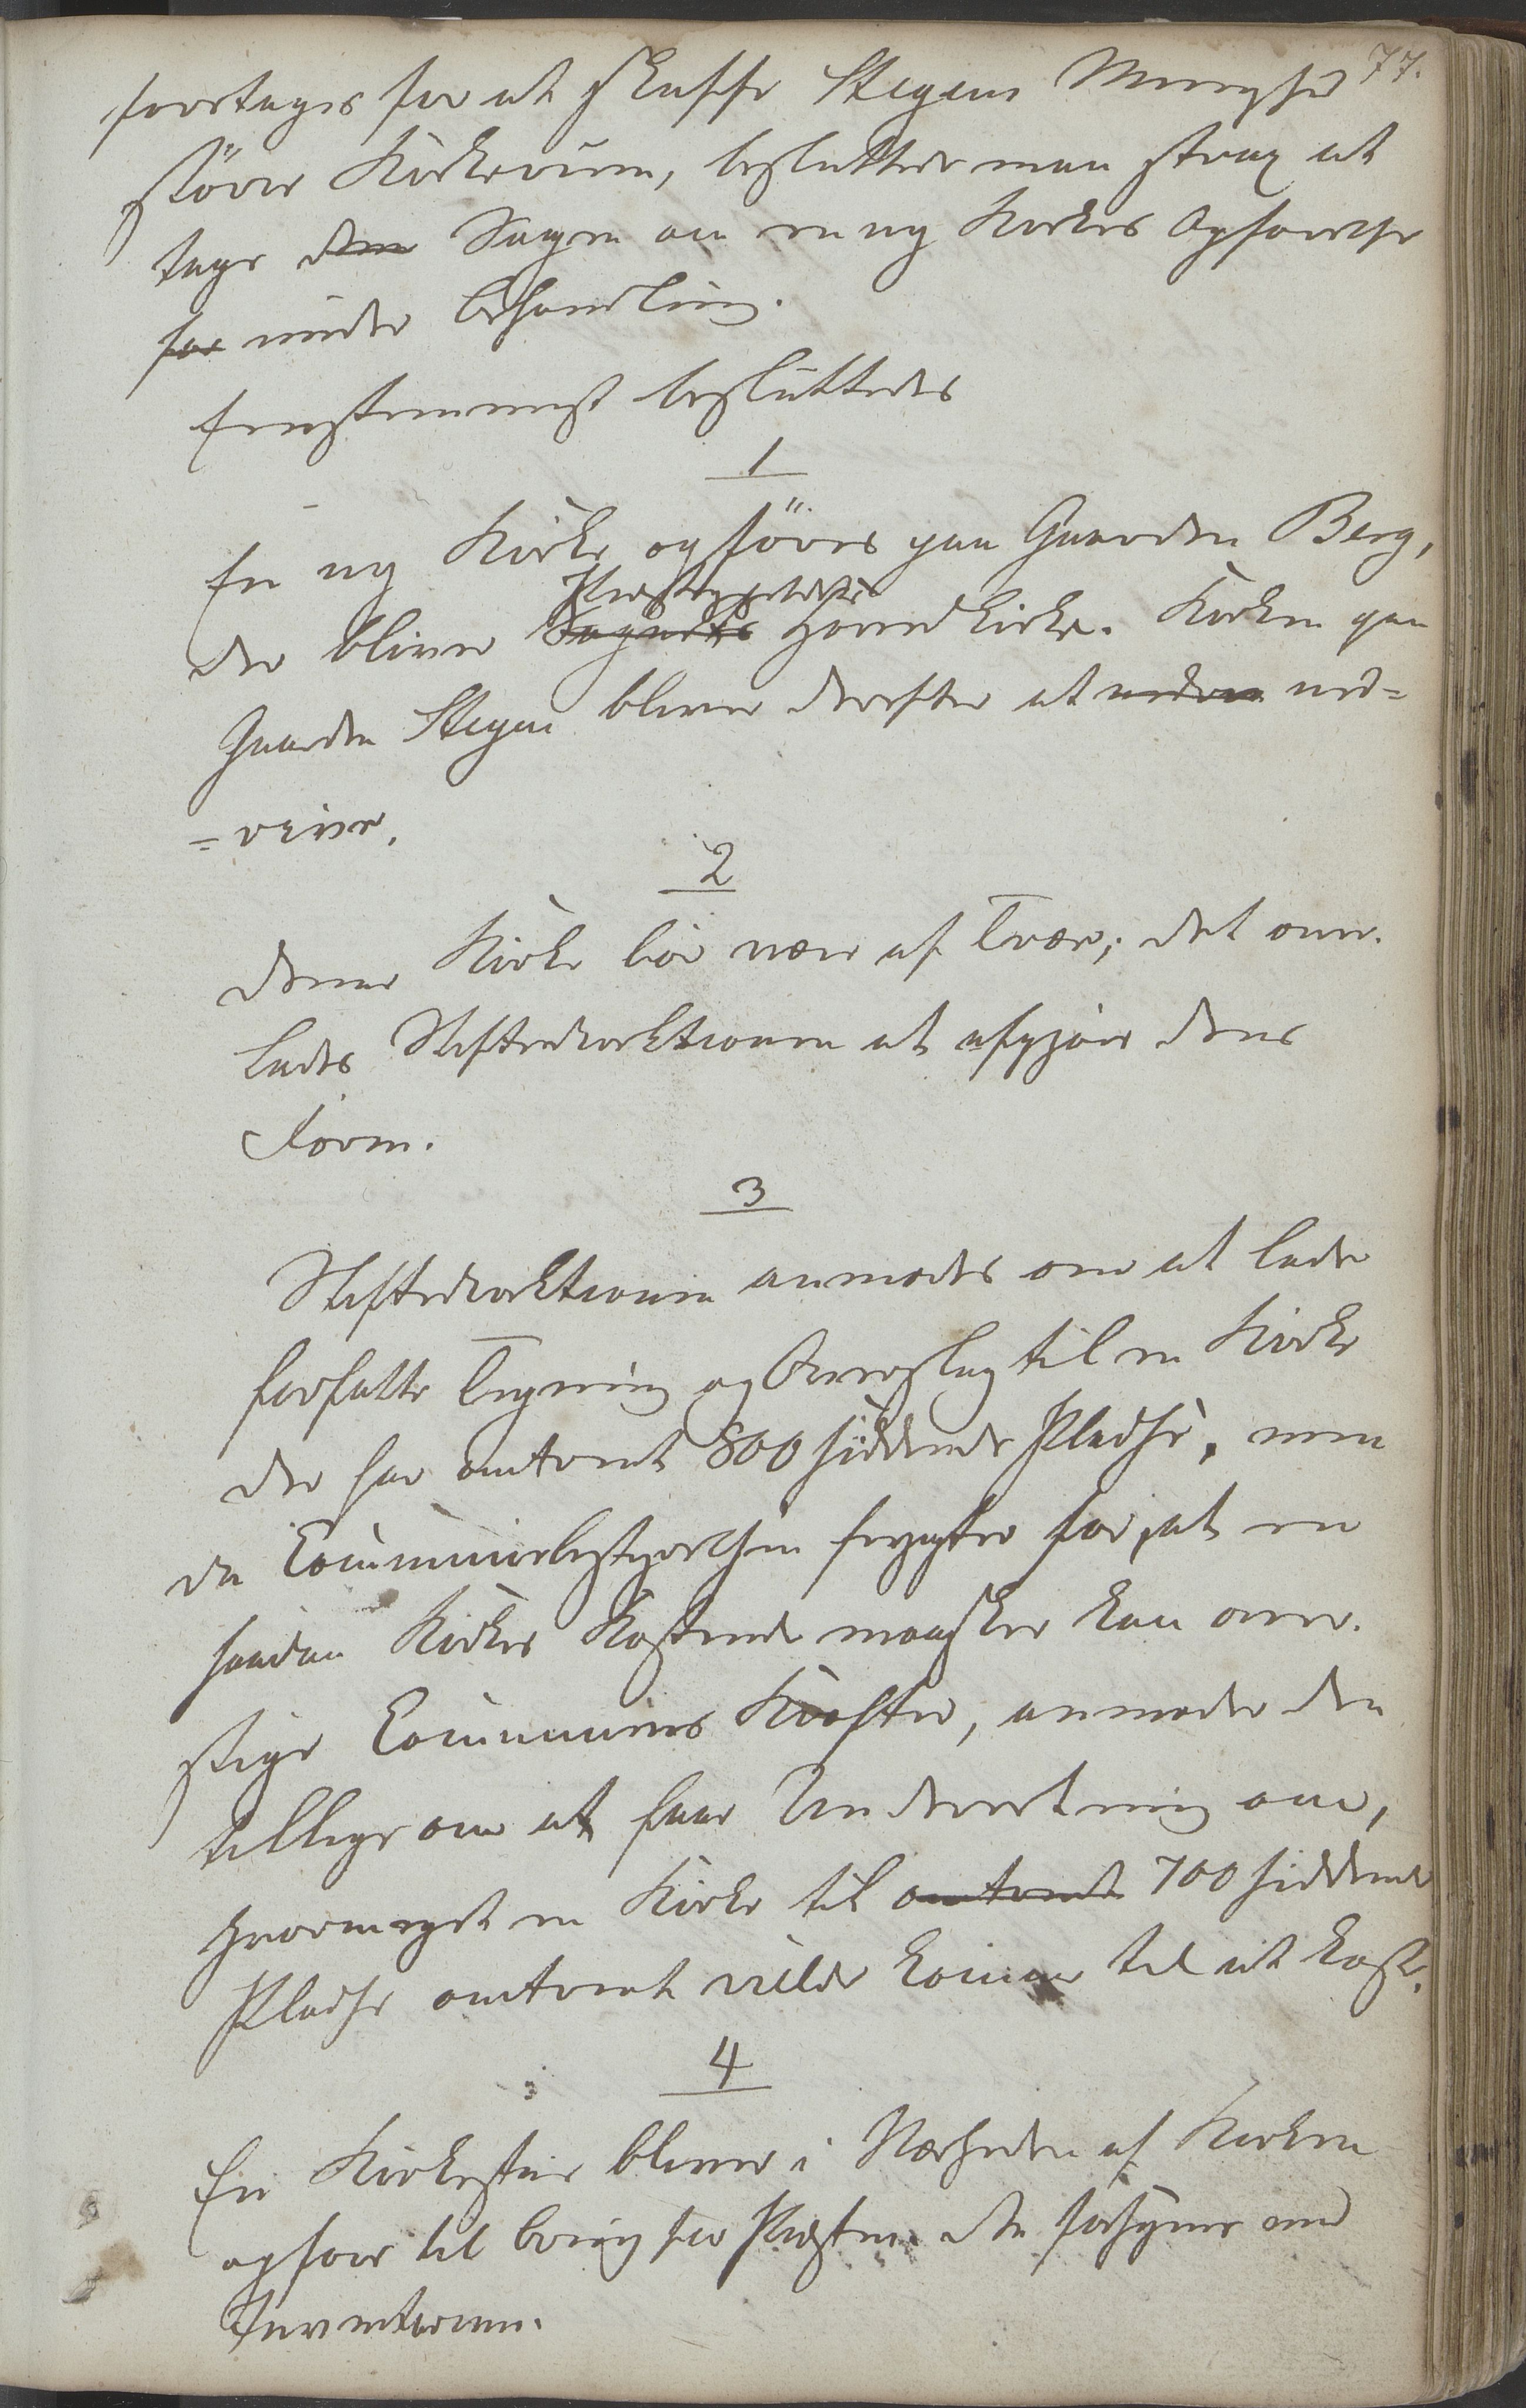 77.
foretages for at skaffe Stegens Menighed
större Kirkerum, besluttede man strax at
tage den Sagen om en ny Kirkes Opførelse
for under Behandling.
Eenstemmigt besluttedes
1
En ny Kirke opföres paa Gaarden Berg,
Præstegjeldets
der bliver Sognets Hovedkirke. Kirken paa
Gaarden Stegen bliver derefter at nedri ned=
=rive.
2
Denne Kirke bør være af Træ; det over-
lades Stiftsdirektionen at afgjøre dens
Form.
3
Stiftsdirektionen anmodes om at lade
forfatte Tegning og Overslag til en Kirke
der har omtrent 800 siddende Pladse, men
da Communebestyrelsen frygter for, at en
saadan Kirkes Kostende maaskee kan over-
stige Communens Kræfter, anmoder den
tillige om at faae Underretning om,
hvormeget en Kirke til omtrent 700 siddende
Pladse omtrent vilde komme til at koste.
4
En Kirkestue bliver i Nærheden af Kirken
opføre til Brug for Præsten. Den forsynes med
Inventarium.